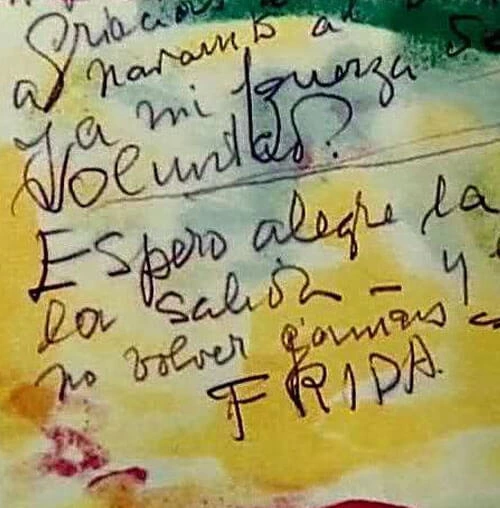 a Naranjo al
y a mi fuerza
Voluntad?
Espero alegre la
la salida – y
no volver jamas
FRIDA.